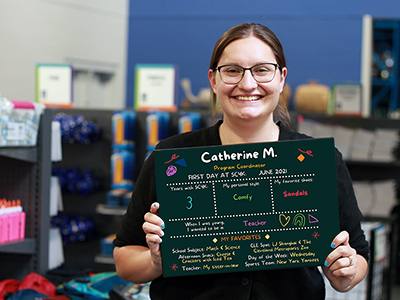 Catherine M.
Program Coordinator
FIRST DAY AT SC4K: JUNE 2021
Years with SC4K:
3
My personal style:
Comfy
My favorite shoes:
Sandals
When I was young
I wanted to be a:
Teacher
MY FAVORITES
School Subject: Math & Science
Afternoon Snack: Cheese &
Crackers with Iced Tea
Teacher: My sister-in-law
CLE Spot: LJ Shanghai & The
Cleveland Metroparks Zoo
Day of the Week: Wednesday
Sports Team: New York Yankees